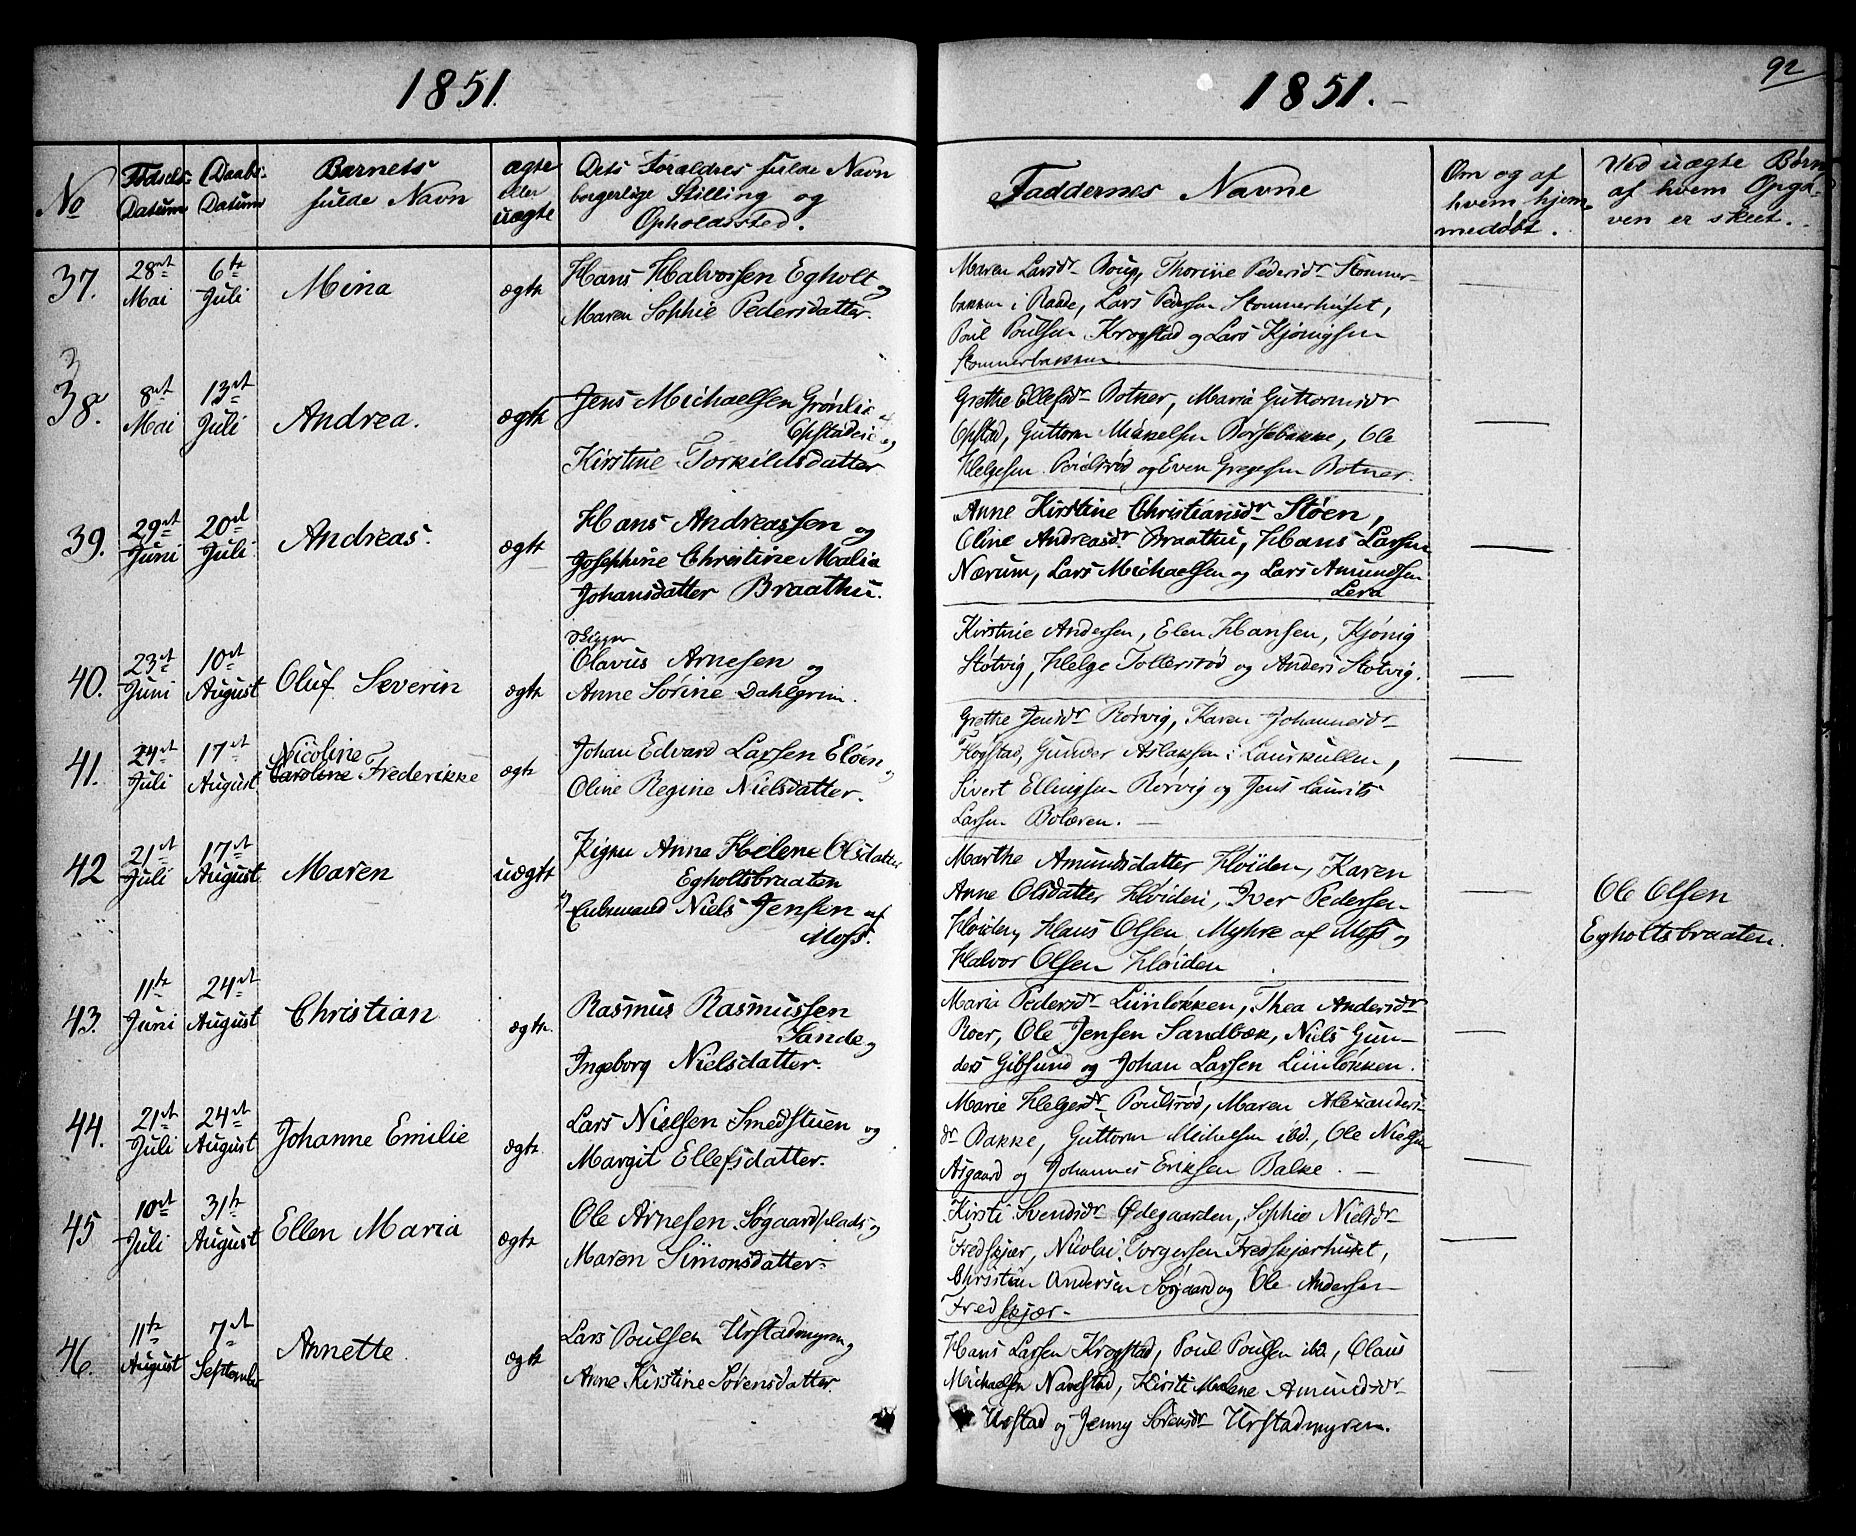 1851.
No
Fødsels-
Datum
Daabs-
Datum
Barnets
fulde Navn
ægte
eller
uægte
Dets Forældres fulde Navn
borgerlige Stilling og
Opholdssted.
37.
28de
Mai
6te
Juli
Mina
ægte
Hans Halvorsen Egholt og
Maren Sophie Pedersdatter.
38.
8de
Mai
13de
Juli
Andrea.
ægte
Jens Michaelsen Grønlie
Opstadeie og
Kirstine Torkildsdatter
39.
29de
Juni
20de
Juli
Andreas.
ægte
Hans Andreassen og
Josephine Christine Malia
Johansdatter Braathu.
40.
23de
Juni
10de
August
Oluf Severin
ægte
Olavus Arnesen og
Anne Sørine Dahlgrim.
41.
24de
Juli
17de
August
Nicoline
Caroline Frederikke
ægte
Johan Edvard Larsen Eløen og
Oline Regine Nielsdatter.
42
21de
Juli
17de
August
Maren
uægte
Pigen Anne Helene Olsdatter
Egholtsbraaten
Enkemand Niels Jensen af
Moss.
43.
11te
Juni
24de
August
Christian
ægte
Rasmus Rasmussen
Sande og
Ingeborg Nielsdatter.
44.
21de
Juli
24de
August
Johanne Emilie
ægte
Lars Nielsen Smedstuen og
Margit Ellefsdatter.
45
10de
Juli
31te
August
Ellen Maria
ægte
Ole Arnesen Søgaardsplads og
Maren Simonsdatter.
46.
11te
August
7de
September
Annette
ægte
Lars Poulsen Urstadmyren og
Anne Kirstine Sørensdatter.
1851.
92
Faddernes Navne
Om og af
hvem hjem-
medøbt.
Ved uægte Børn
af hvem Opga-
ven er skeet.
Maren Larsdr Boup, Thorine Pedersdr Stommer-
bakken i Raade, Lars Pedersen Stommerhuset,
Poul Poulsen Krogstad og Lars Kjønigsen
Stommerbakken
Grethe Ellefsdr Botner, Maria Guttormsdr
Opstad, Guttorm Mikkelsen Borsebakke, Ole
Helgesen Poulsrød og Even Gregersen Botner.
Anne Kirstine Christiansdr Støen,
Oline Andreasdr Braathu, Hans Larsen
Nærum, Lars Michaelsen og Lars Amundsen
Lera
Kirstine Andersen, Elen Hansen, Kjønig
Støtvig, Helge Tollersrød og Anders Støtvig.
Grethe Jensdr Rørvig, Karen Johannesdr
Flogstad, Gunder Aslaksen i Laurkullen,
Sivert Ellingsen Rørvig og Jens Laurits
Larsen Bolæren.
Marthe Amundsdatter Høiden, Karen
Anne Olsdatter Høiden, Iver Pedersen
Høiden, Hans Olsen Myhre af Moss og
Halvor Olsen Høiden
Ole Olsen
Egholtsbraaten.
Maria Pedersdr Liinløkken, Thea Andersdr
Roer, Ole Jensen Sandbæk, Niels Gun-
ders Gibsund og Johan Larsen Liinløkken.
Marie Helgesdr Poulsrød, Maren Alexanders-
dr Bakke, Guttorm Michelsen ibd., Ole Nielsen
Asgaard og Johannes Eriksen Balke.
Kirsti Svendsdr Ødegaarden, Sophie Nielsdr
Fredskjær, Nicolai Torgersen Fredskjærhuset,
Christian Andersen Søgaard og Ole Andersen
Fredskjær.
Hans Larsen Krogstad, Poul Poulsen ibd., Olaus
Michaelsen Navestad, Kirsti Malene Amundsdr
Urstad og Jenny Sørensdr Urstadmyren.